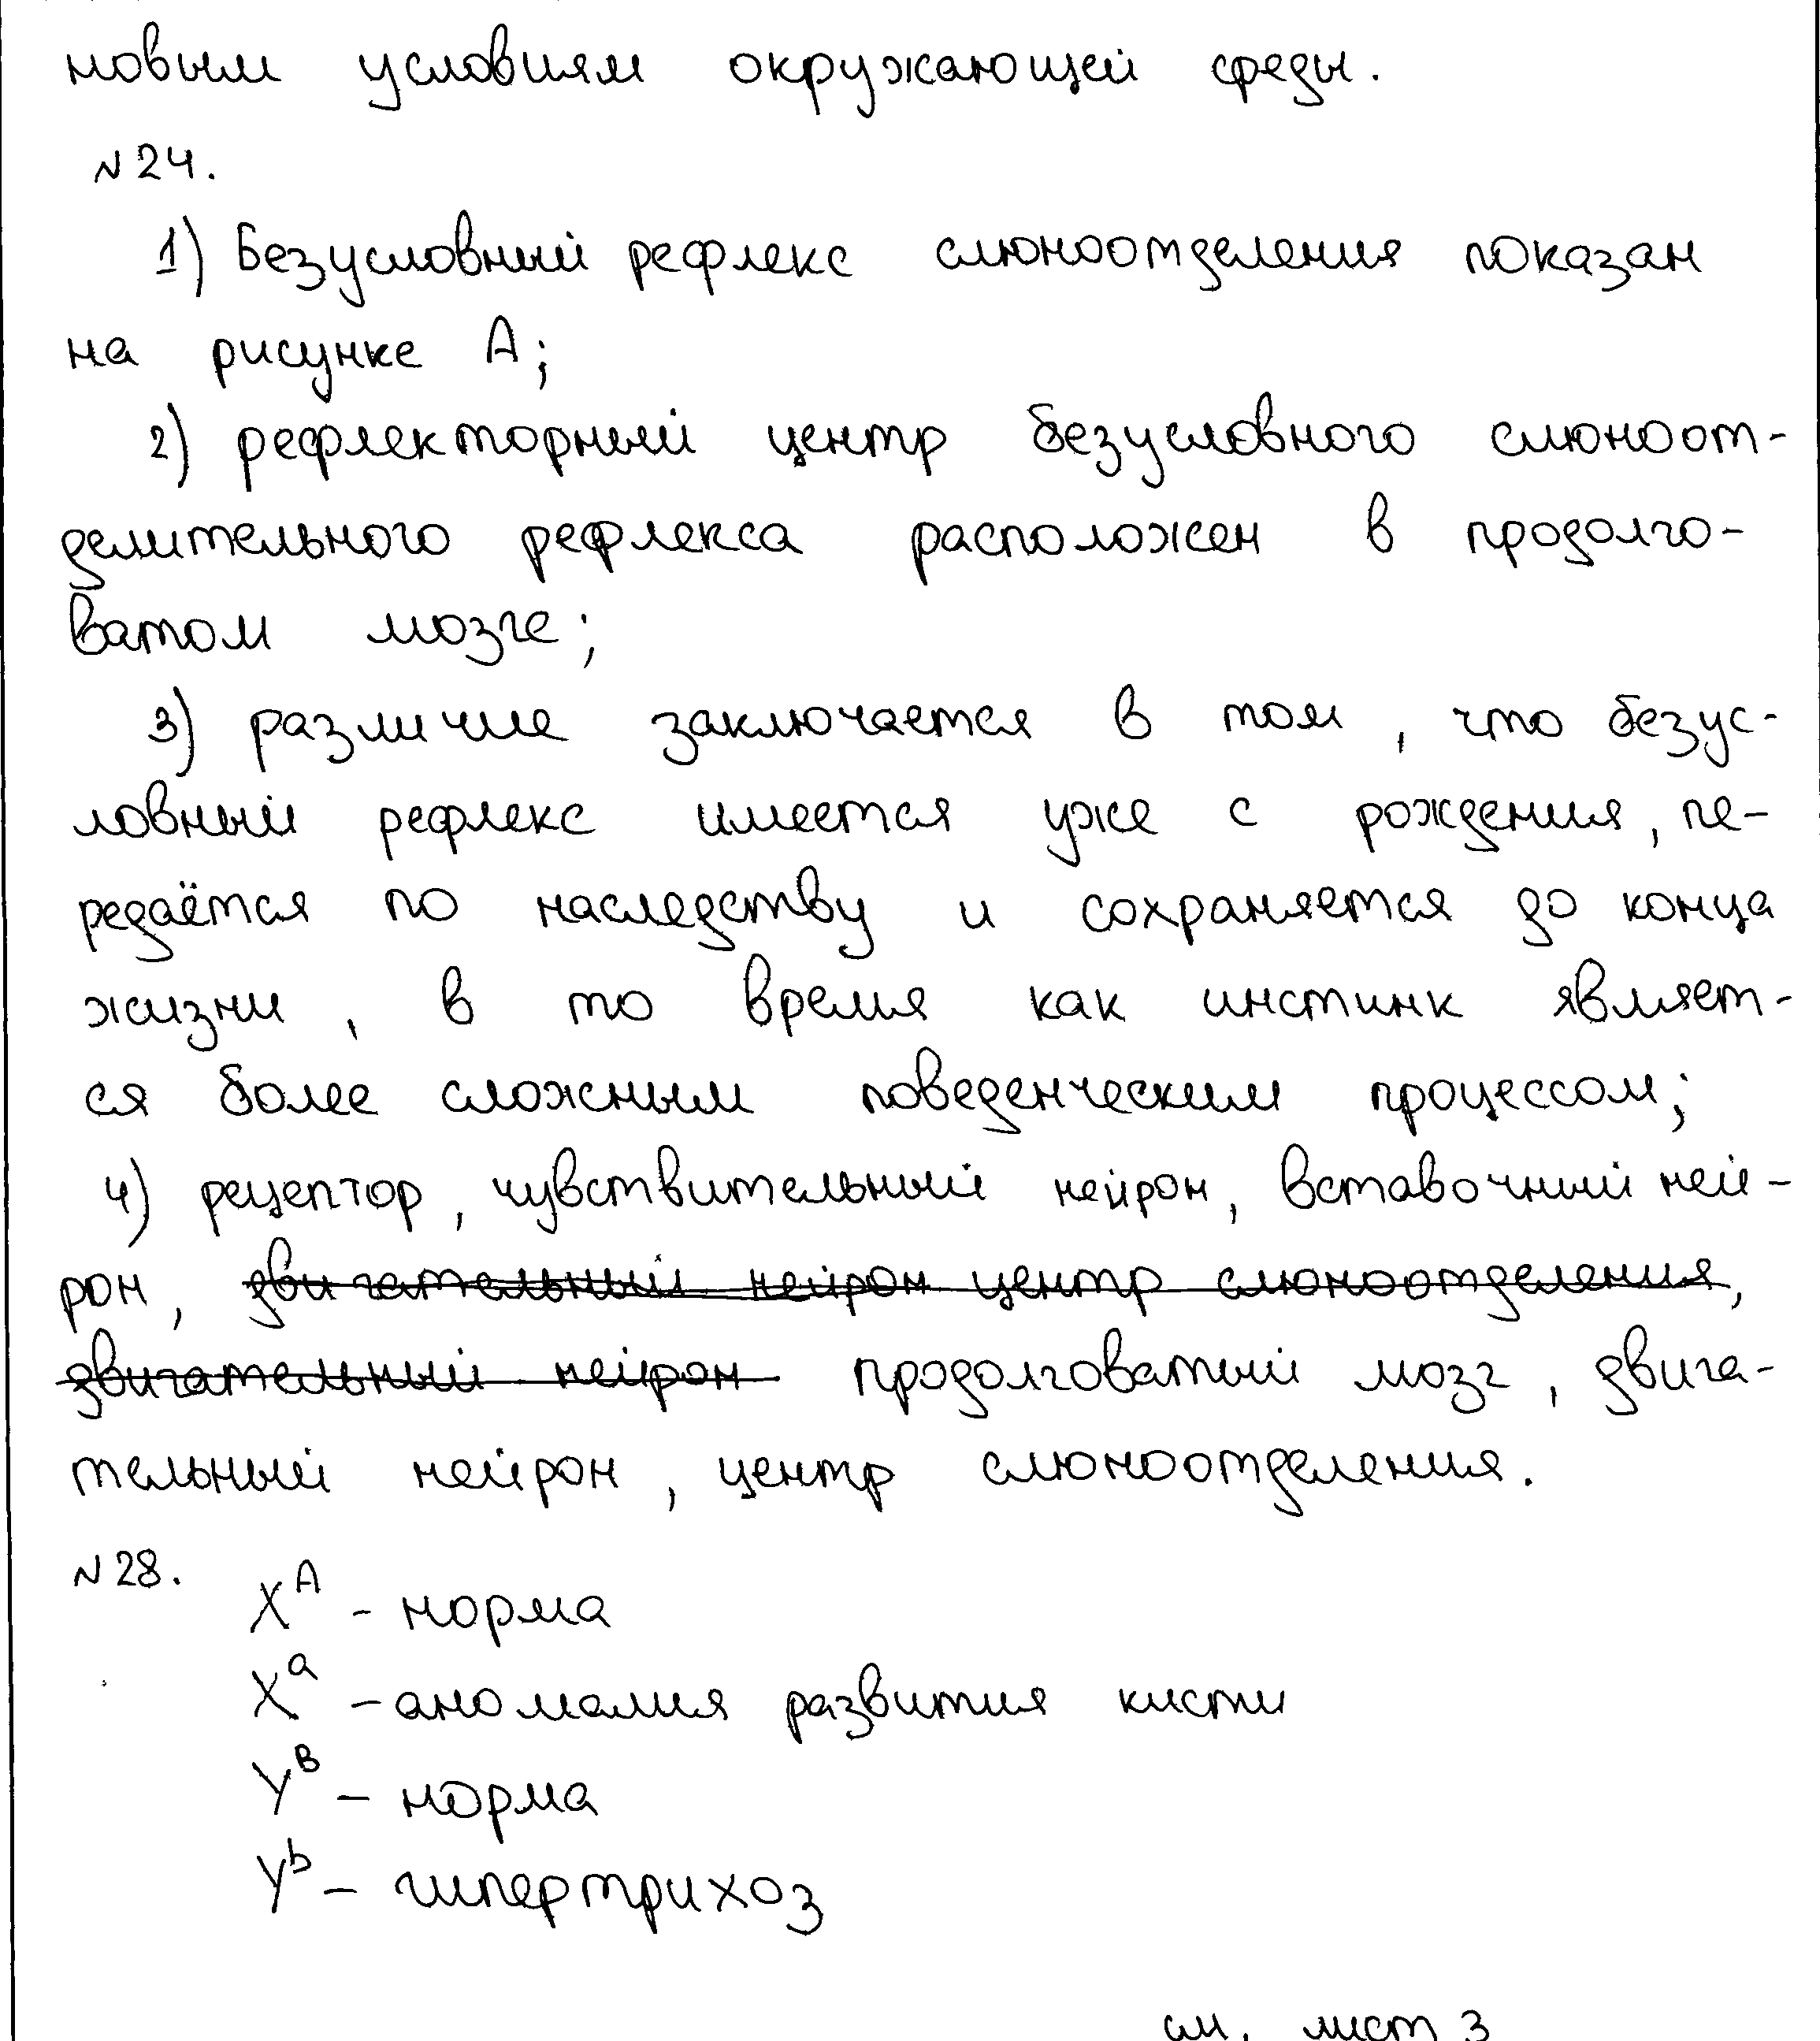 новым условиям окружающей среды.
№24.
1) Безусловный рефлекс слюноотделения показан
на рисунке А;
2) рефлекторный центр безусловного слюноот-
делительного рефлекса расположен в продолго-
ватом мозге;
3) различие заключается в том, что безус-
ловный рефлекс имеется уже с рождения, пе-
редаётся по наследству и сохраняется до конца
жизни, в то время как инстинк являет-
ся более сложным поведенческим процессом;
4) рецептор, чувствительный нейрон, вставочный ней-
рон, двигательный нейрон центр слюноотделения,
двигательный нейрон продолговатый мозг, двига-
тельный нейрон, центр слюноотделения.
№28.
X^A - норма
X^a - аномалия развития кисти
Y^B - норма
Y^b - гипертрихоз
см. лист 3